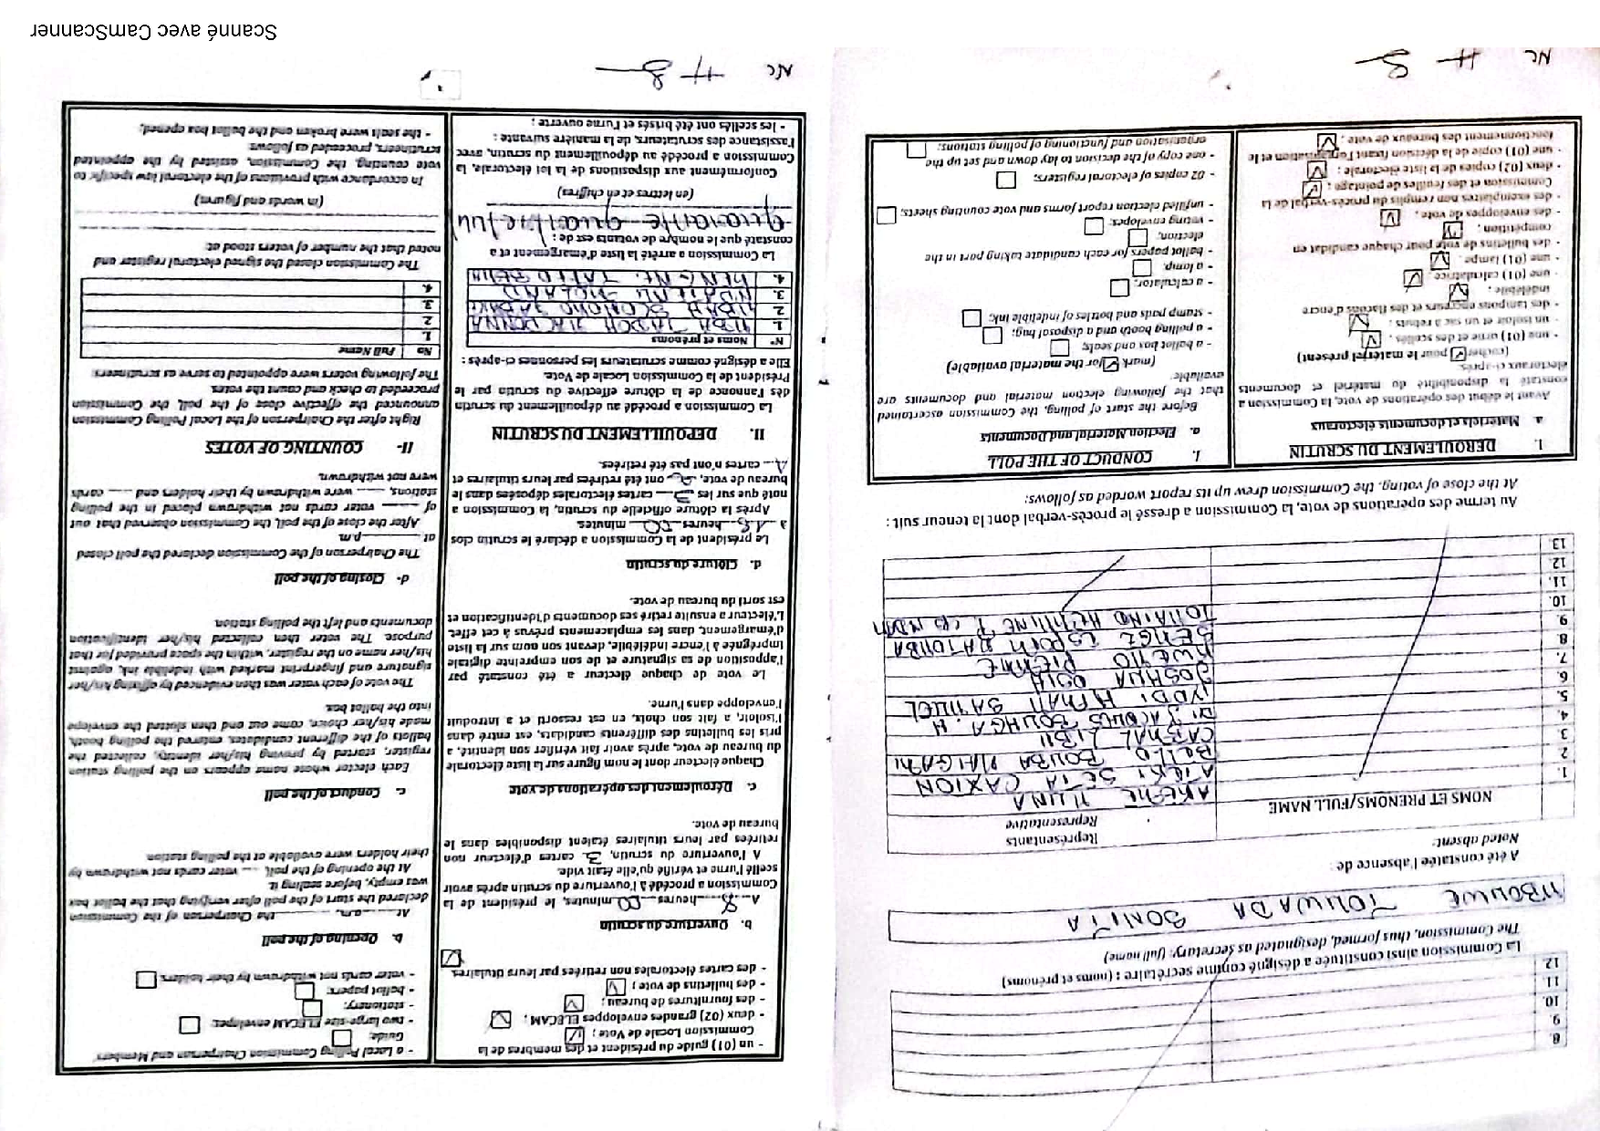 8
9
10.
11
12
La Commission ainsi constituée a désigné comme secrétaire : (noms et prénoms)
The Commission, thus formed, designated as secretary: (full name)
MBOUWE TOUWADA BONITA
A été constatée l'absence de :
Noted absent:
NOMS ET PRENOMS/FULL NAME
Représentants
Representative
1. AKERE MUNA
ATEKI SETA CAXTON
2 BELLO BOUBA MAIGARI
3 CABRAL LIBII
4. Dr JACQUES BOUHGA. H
5. IYODI HIRAM SAMUEL
6. JOSHUA OSIH
7. KWEMO PIERRE
8 SERGE ESPOIR MATOMBA
9. TOMAINO HERMINE P.
10.
11.
12.
13
Au terme des opérations de vote, la Commission a dressé le procès-verbal dont la teneur suit :
At the close of voting, the Commission drew up its report worded as follows:
I. DEROULEMENT DU SCRUTIN
a Matériels et documents électoraux
Avant le début des opérations de vote, la Commission a
constaté la disponibilité du matériel et documents
électoraux ci-après:
(cocher ☑ pour le matériel présent)
- une (01) urne et des scellés ;
- un isoloir et un sac à rebuts ;
- des tampons encreurs et des flacons d'encre
indélébile ;
- une (01) calculatrice ;
- une (01) lampe ;
- des bulletins de vote pour chaque candidat en
compétition ;
- des enveloppes de vote ;
- des exemplaires non remplis du procès-verbal de la
Commission et des feuilles de pointage ;
- deux (02) copies de la liste électorale ;
- une (01) copie de la décision fixant l'organisation et le
fonctionnement des bureaux de vote ;
I. CONDUCT OF THE POLL
a. Election Material and Documents
Before the start of polling, the Commission ascertained
that the following election material and documents are
available:
(mark ☑ for the material available)
- a ballot box and seals;
- a polling booth and a disposal bag;
- stamp pads and bottles of indelible ink;
- a calculator;
- a lamp;
- ballot papers for each candidate taking part in the
election;
- voting envelopes;
- unfilled election report forms and vote counting sheets;
- 02 copies of electoral registers;
- one copy of the decision to lay down and set up the
organisation and functioning of polling stations;
NC
- un (01) guide du président et des membres de la
Commission Locale de Vote ;
- deux (02) grandes enveloppes ELECAM ;
- des fournitures de bureau ;
- des bulletins de vote ;
- des cartes électorales non retirées par leurs titulaires
b. Ouverture du scrutin
A 8 heures 00 minutes, le président de la
Commission a procédé à l'ouverture du scrutin après avoir
scellé l'urne et vérifié qu'elle était vide.
A l'ouverture du scrutin, 3 cartes d'électeur non
retirées par leurs titulaires étaient disponibles dans le
bureau de vote.
c. Déroulement des opérations de vote
Chaque électeur dont le nom figure sur la liste électorale
du bureau de vote, après avoir fait vérifier son identité, a
pris les bulletins des différents candidats, est entré dans
l'isoloir, a fait son choix, en est ressorti et a introduit
l'enveloppe dans l'urne.
Le vote de chaque électeur a été constaté par
l'apposition de sa signature et de son empreinte digitale
imprégnée à l'encre indélébile, devant son nom sur la liste
d'émargement, dans les emplacements prévus à cet effet.
L'électeur a ensuite retiré ses documents d'identification et
est sorti du bureau de vote.
d. Clôture du scrutin
Le président de la Commission a déclaré le scrutin clos
à 18 heures 00 minutes.
Après la clôture officielle du scrutin, la Commission a
noté que sur les 3 cartes électorales déposées dans le
bureau de vote, 2 ont été retirées par leurs titulaires et
1 cartes n'ont pas été retirées.
II. DEPOUILLEMENT DU SCRUTIN
La Commission a procédé au dépouillement du scrutin
dès l'annonce de la clôture effective du scrutin par le
Président de la Commission Locale de Vote.
Elle a désigné comme scrutateurs les personnes ci-après :
N° Noms et prénoms
1.
2.
3.
4.
La Commission a arrêté la liste d'émargement et a
constaté que le nombre de votants est de :
quarante quatre (44)
(en lettres et en chiffres)
Conformément aux dispositions de la loi électorale, la
Commission a procédé au dépouillement du scrutin, avec
l'assistance des scrutateurs, de la manière suivante :
- les scellés ont été brisés et l'urne ouverte ;
- a Local Polling Commission Chairperson and Members
Guide;
- two large-size ELECAM envelopes;
- stationery;
- ballot papers;
- voter cards not withdrawn by their holders.
b. Opening of the poll
At a.m. the Chairperson of the Commission
declared the start of the poll after verifying that the ballot box
was empty, before sealing it.
At the opening of the poll, voter cards not withdrawn by
their holders were available at the polling station
c. Conduct of the poll
Each elector whose name appears on the polling station
register, started by proving his/her identity, collected the
ballots of the different candidates, entered the polling booth,
made his/her choice, came out and then slotted the envelope
into the ballot box.
The vote of each voter was then evidenced by affixing his/her
signature and fingerprint marked with indelible ink, against
his/her name on the register, within the space provided for that
purpose. The voter then collected his/her identification
documents and left the polling station.
d- Closing of the poll
The Chairperson of the Commission declared the poll closed
at p.m.
After the close of the poll, the Commission observed that out
of voter cards not withdrawn placed in the polling
stations, were withdrawn by their holders and cards
were not withdrawn.
II- COUNTING OF VOTES
Right after the Chairperson of the Local Polling Commission
announced the effective close of the poll, the Commission
proceeded to check and count the votes.
The following voters were appointed to serve as scrutineers:
No Full Name
1.
2
3.
4.
The Commission closed the signed electoral register and
noted that the number of voters stood at:
(in words and figures)
In accordance with provisions of the electoral law specific to
vote counting, the Commission, assisted by the appointed
scrutineers, proceeded as follows:
- the seals were broken and the ballot box opened;
NC
Scanné avec CamScanner